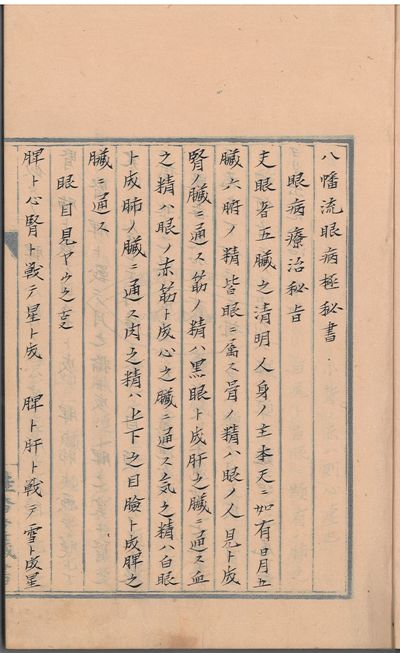 八幡流眼病極秘書
眼病療治秘旨
夫眼者五臓之清明人身ノ主本天ニ如有日月五
臓六腑ノ精皆眼ニ属ス骨ノ精ハ眼ノ人見ト成
腎ノ臓ニ通ス筋ノ精ハ黒眼ト成肝之臓ニ通ス血
之精ハ眼ノ赤筋ト成心之臓ニ通ス気之精ハ白眼
ト成肺ノ臓ニ通ス肉之精ハ上下之目瞼ト成脾之
臓ニ通ス
眼目見ヤウ之事
脾ト心腎ト戦テ星ト成　脾ト肝ト戦テ雪ト成星